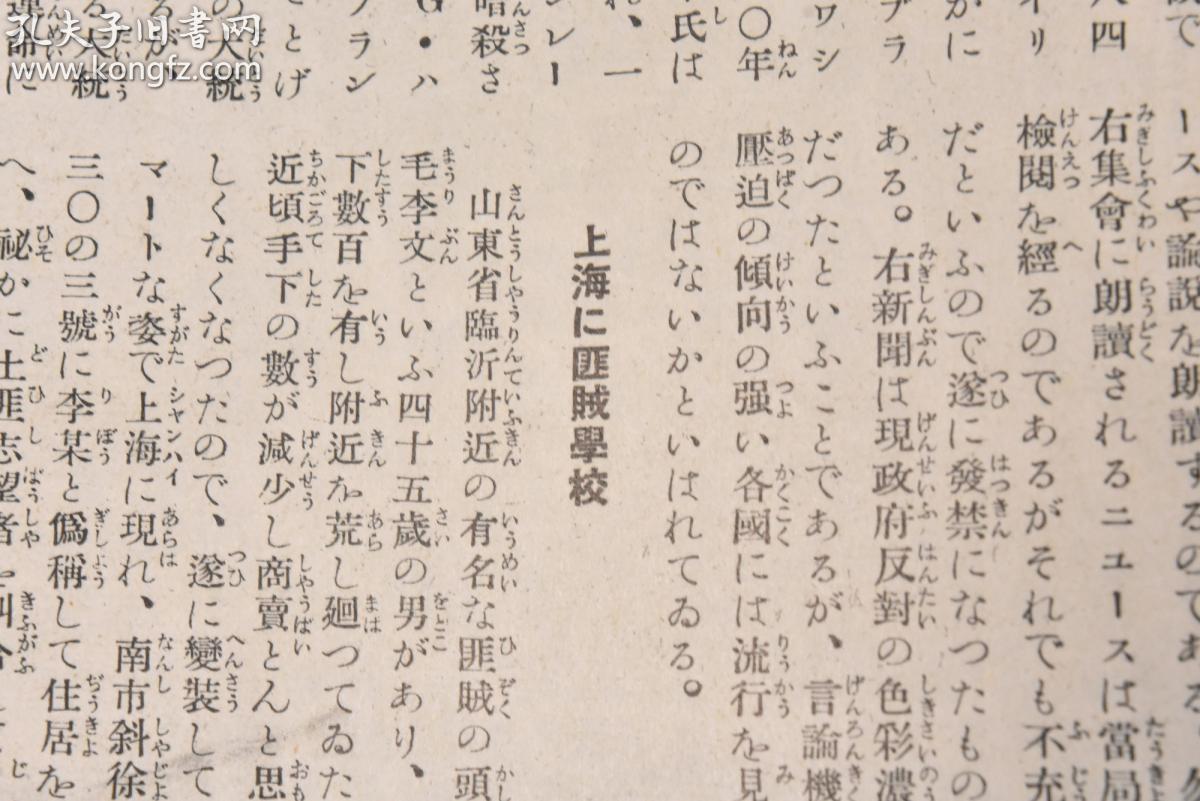 孔夫子旧书网
www.kongfz.com
ースや論説を朗讀するのである
右集會に朗讀されるニュースは當局
檢閲を經るのであるがそれでも不充
だといふので遂に發禁になつたもの
ある。右新聞は現政府反對の色彩濃
だつたといふことであるが、言論機
壓迫の傾向の强い各國には流行を見
のではないかといはれてゐる。
上海に匪賊學校
山東省臨沂附近の有名な匪賊の頭
毛李文といふ四十五歲の男があり、
下數百を有し附近を荒し廻つてゐた
近頃手下の數が減少し商賣とんと思
しくなくなつたので、遂に變裝して
マートな姿で上海に現れ、南市斜徐
三〇の三號に李某と僞稱して住居を
へ、秘かに土匪志望者を糾合して
八四
イリ
かに
ブラ
ワシ
〇年
氏は
れ、一
ンレー
暗殺さ
G・ハ
フラン
とげ
の大統
るが、
る大統
運命に